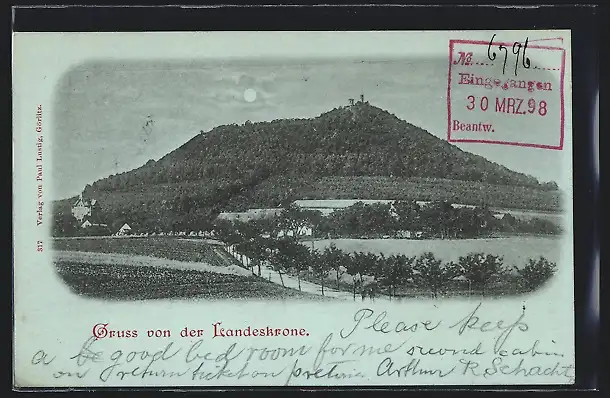 No. 6796
Eingegangen
30 MRZ. 98
Beantw.
317 Verlag von Paul Lustig, Görlitz.
Gruss von der Landeskrone.
Please keep
a good bed room for me second cabin
on return ticket on pretoria Arthur R Schacht